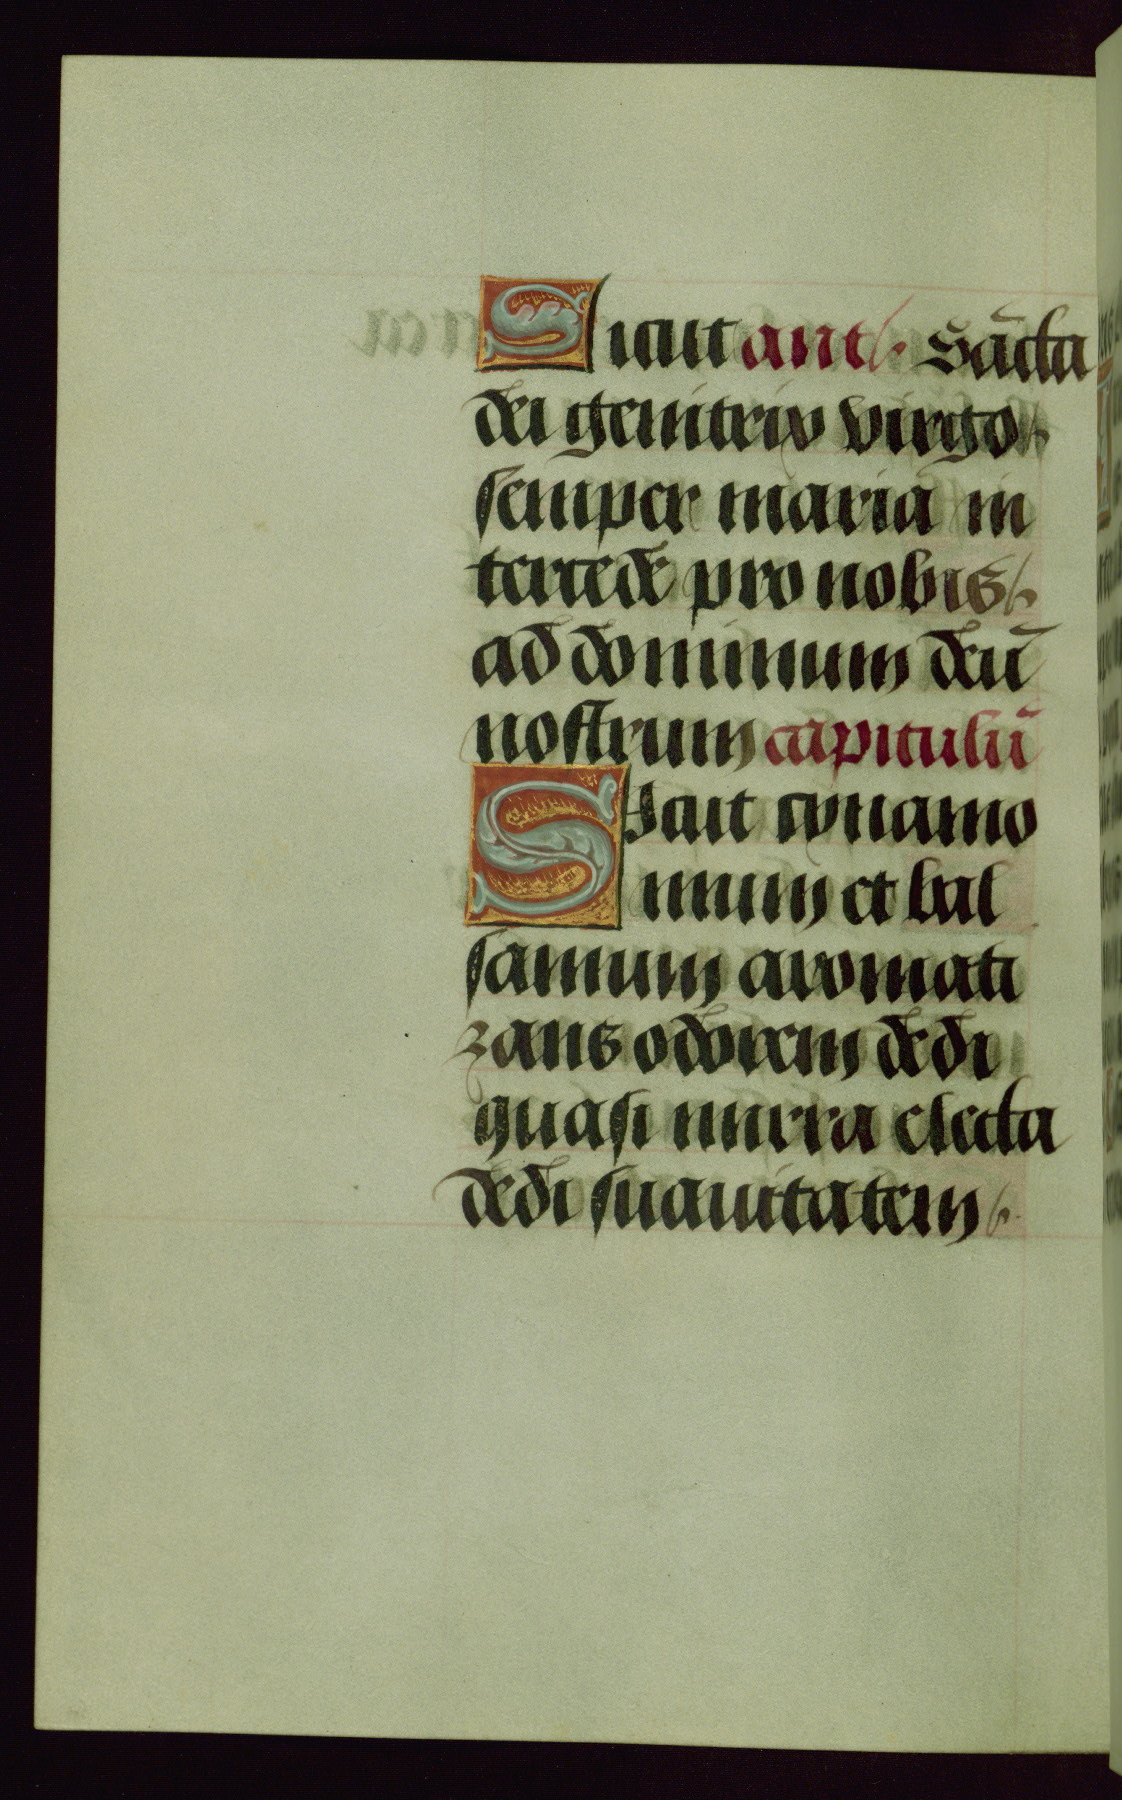 Sicut ant. Sācta
dei genitrix virgo
semper maria in
tercede pro nobis
ad dominum deū
nostrum capitulū
Sicut cynamo
mum et bal
samum aromati
zans odorem dedi
quasi mirra electa
dedi suauitatem.